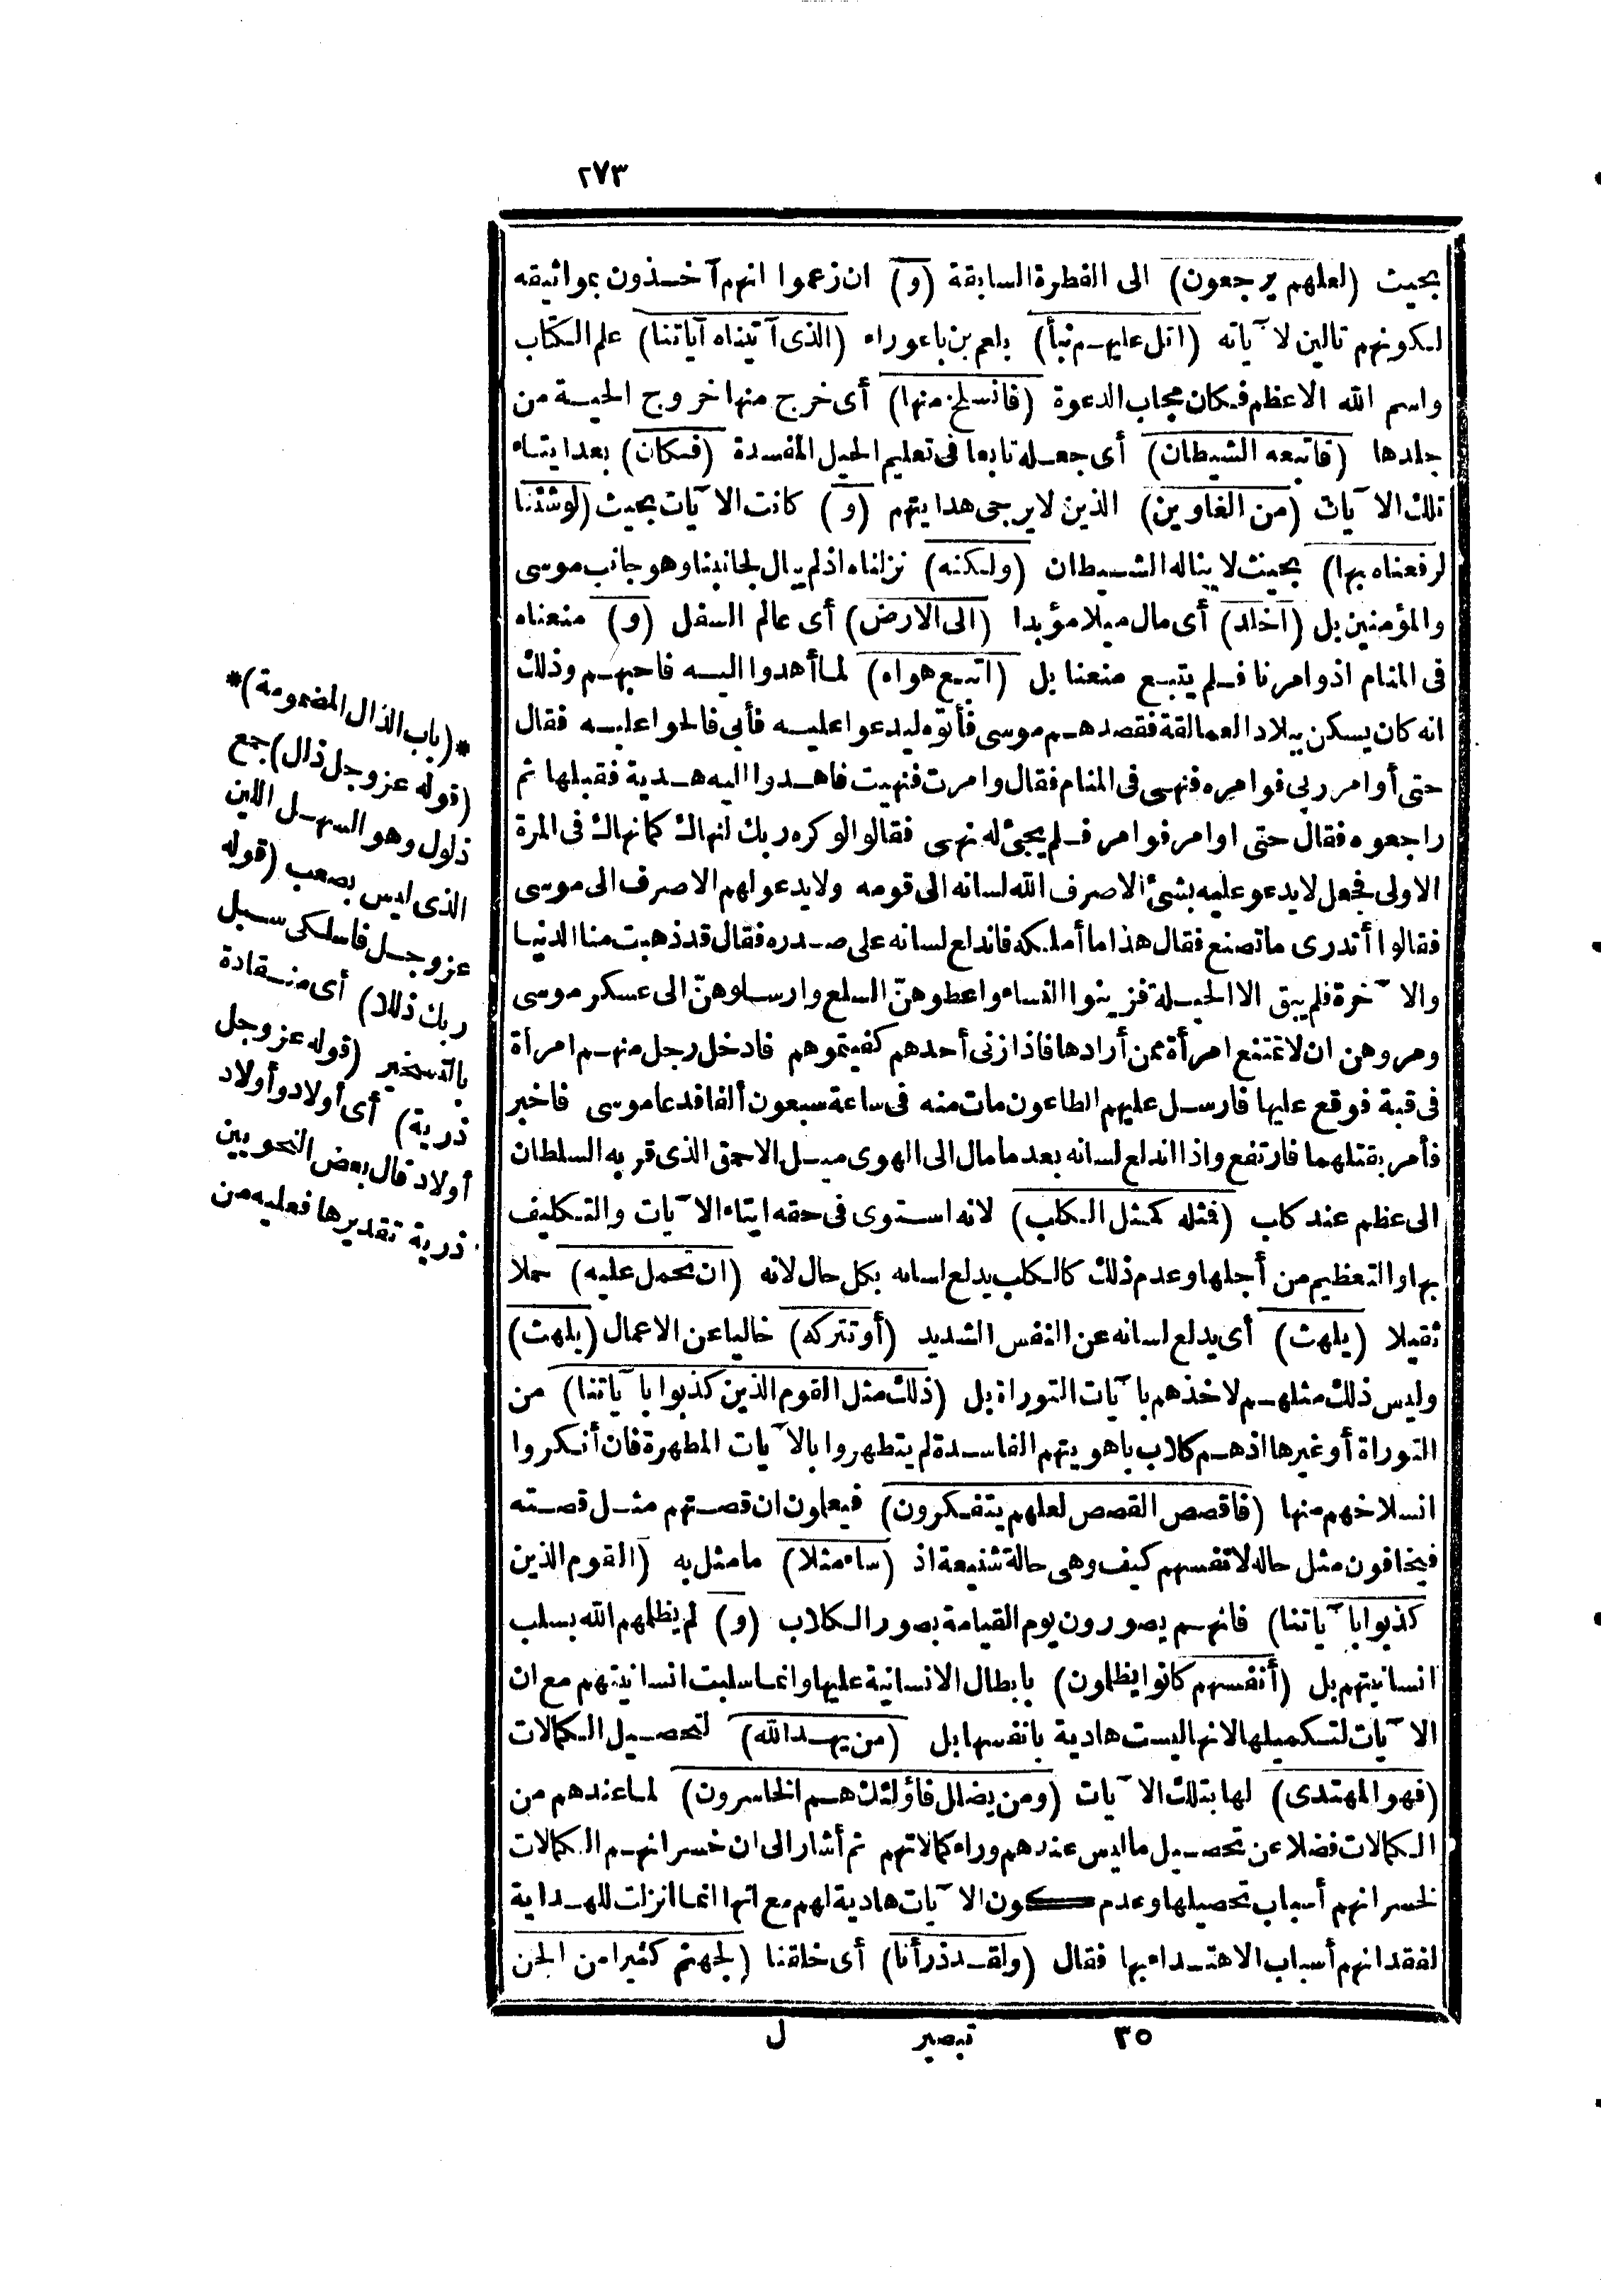 ٢٧٣
بحيث (لعلهم يرجعون) الى الفطرة السابقة (و) ان زعموا انهم آخذون بمواثيقه
لكونهم تالين لآياته (اتل عليهم نبأ) بلعم بن باعوراء (الذى آتيناه آياتنا) علم الكتاب
واسم الله الاعظم فكان مجاب الدعوة (فانسلخ منها) أى خرج منها خروج الحية من
جلدها (فاتبعه الشيطان) أى جعله تابعا فى تعليم الحيل المفسدة (فكان) بعد ايتاء
تلك الآيات (من الغاوين) الذين لا يرجى هدايتهم (و) كانت الآيات بحيث (لو شئنا
لرفعناه بها) بحيث لا يناله الشيطان (ولكنه) نزلناه اذ لم يمال لجانبنا وهو جانب موسى
والمؤمنين بل (أخلد) أى مال ميلا مؤبدا (الى الارض) أى عالم السفل (و) منعناه
فى المنام اذ وامرنا فلم يتبع منعنا بل (اتبع هواه) لما أهدوا اليه فاحبهم وذلك
انه كان يسكن ببلاد العمالقة فقصدهم موسى فأتوه ليدعوا عليه فأبى فالحوا عليه فقال
حتى أوامر ربى فوامره فنهى فى المنام فقال وامرت فنهيت فاهدوا اليه هدية فقبلها ثم
راجعوه فقال حتى اوامر فوامر فلم يجئ له نهى فقالوا لو كره ربك لنهاك كما نهاك فى المرة
الاولى فجعل لا يدعو عليه بشئ الا صرف الله لسانه الى قومه ولا يدعو لهم الا صرف الى موسى
فقالوا أتدرى ما تصنع فقال هذا ما أملكه فاندلع لسانه على صدره فقال قد ذهبت منا الدنيا
والآخرة فلم يبق الا الحيلة فزينوا النساء واعطوهن السلع وارسلوهن الى عسكر موسى
ومروهن ان لا تمتنع امرأة ممن أرادها فاذا زنى أحدهم كفيتموهم فادخل رجل منهم امرأة
فى قبة فوقع عليها فارسل عليهم الطاعون مات منه فى ساعة سبعون ألفا فدعا موسى فاخبر
فأمر بقتلهما فارتفع واذا اندلع لسانه بعد ما مال الى الهوى ميل الاحمق الذى قربه السلطان
الى عظم عند كلب (فمثله كمثل الكلب) لانه استوى فى حقه ايتاء الآيات والتكليف
بها والتعظيم من أجلها وعدم ذلك كالكلب يدلع لسانه بكل حال لانه (ان تحمل عليه) حملا
ثقيلا (يلهث) أى يدلع لسانه عن النفس الشديد (أو تتركه) خاليا عن الاعمال (يلهث)
وليس ذلك مثلهم لاخذهم بآيات التوراة بل (ذلك مثل القوم الذين كذبوا بآياتنا) من
التوراة أو غيرها اذ هم كلاب باهويتهم الفاسدة لم يتطهروا بالآيات المطهرة فان أنكروا
انسلاخهم منها (فاقصص القصص لعلهم يتفكرون) فيعلمون ان قصتهم مثل قصته
فيخافون مثل حاله لانفسهم كيف وهى حالة شنيعة اذ (ساء مثلا) ما مثل به (القوم الذين
كذبوا بآياتنا) فانهم يصورون يوم القيامة بصور الكلاب (و) لم يظلمهم الله بسلب
انسانيتهم بل (أنفسهم كانوا يظلمون) بابطال الانسانية عليها وانما سلبت انسانيتهم مع ان
الآيات لتكميلها لانها ليست هادية بانفسها بل (من يهد الله) لتحصيل الكمالات
(فهو المهتدى) لها بتلك الآيات (ومن يضلل فأولئك هم الخاسرون) لما عندهم من
الكمالات فضلا عن تحصيل ما ليس عندهم وراء كمالاتهم ثم أشار الى ان خسرانهم الكمالات
لخسرانهم أسباب تحصيلها وعدم كون الآيات هادية لهم مع انها انما انزلت للهداية
لفقدانهم أسباب الاهتداء بها فقال (ولقد ذرأنا) أى خلقنا (لجهنم كثيرا من الجن
٣٥ تبصير ل
*(باب الذال المضمومة)*
(قوله عز وجل ذلل) جمع
ذلول وهو السهل اللين
الذى ليس بصعب (قوله
عز وجل فاسلكى سبل
ربك ذللا) أى منقادة
بالتسخير (قوله عز وجل
ذرية) أى أولاد وأولاد
أولاد قال بعض النحويين
ذرية تقديرها فعلية من